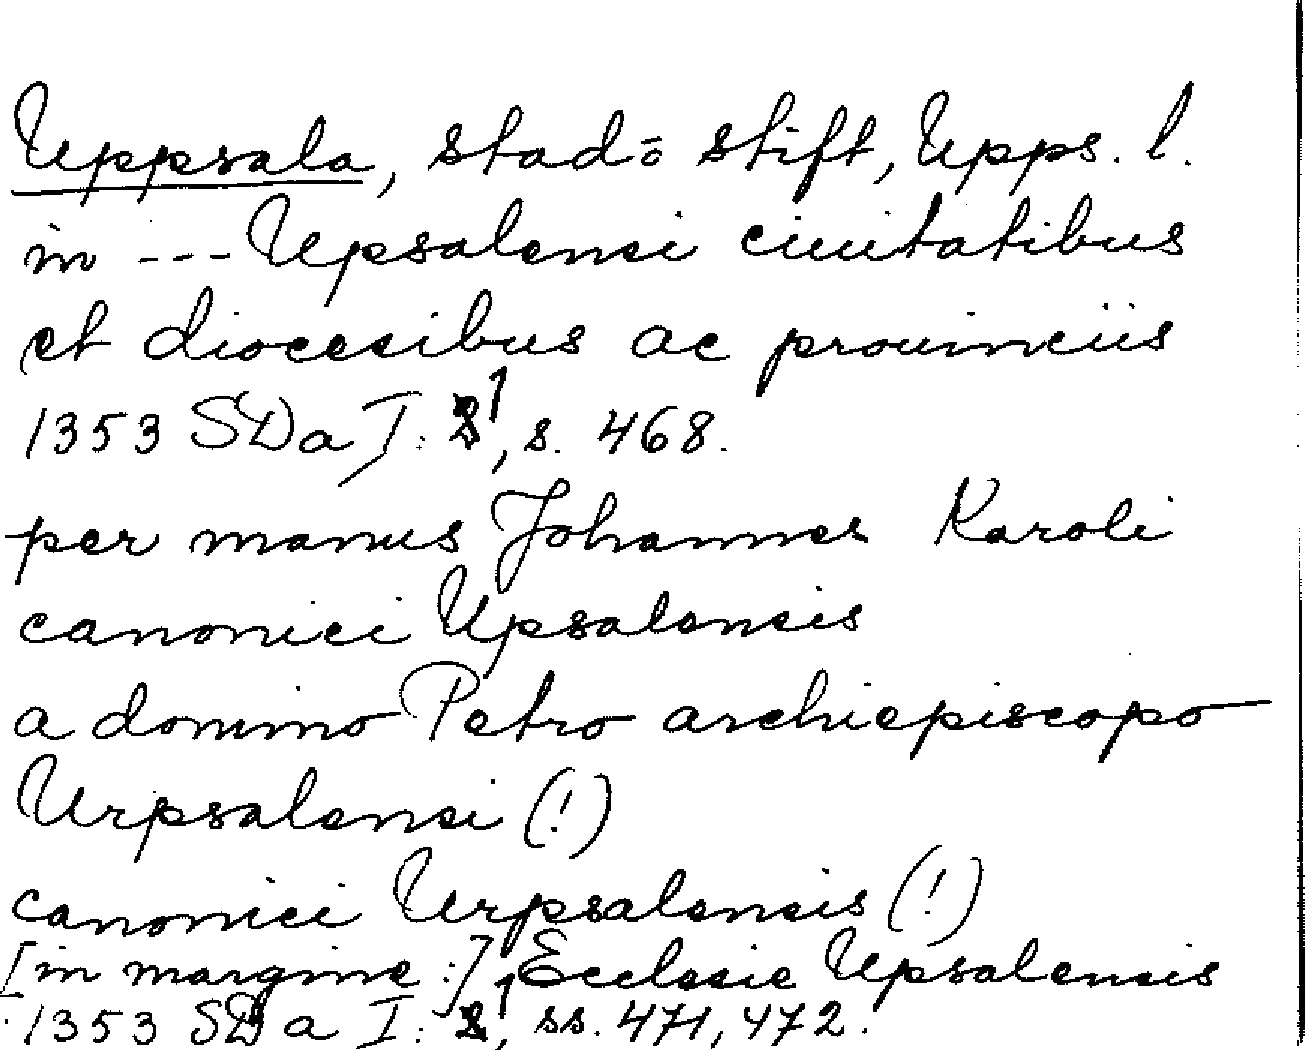 Uppsala, stad o stift, Upps. l.
in --- Upsalensi ciuitatibus
et diocesibus ac prouinciis
1353 SDa I: 1, s. 468.
per manus Johannes Karoli
canonici Upsalensis
a domino Petro archiepiscopo
Urpsalensi (!)
canonici Urpsalensis (!)
[in margine:] Ecclesie Upsalensis
1353 SDa I: 1, ss. 471, 472.